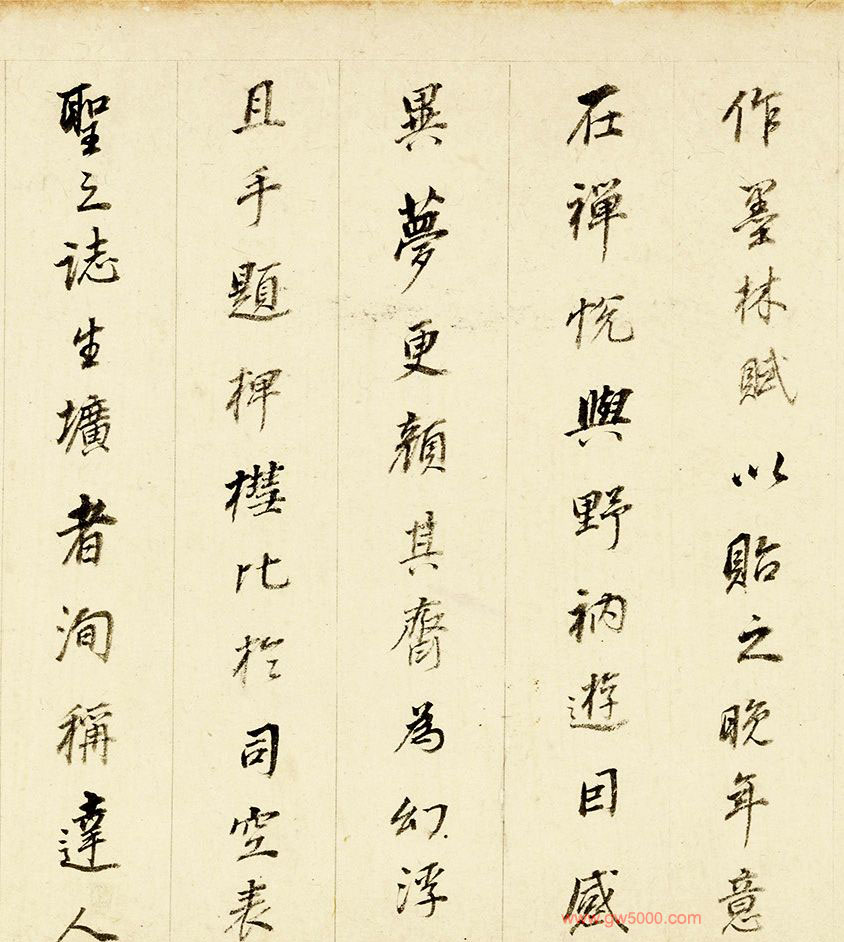 作墨林賦以貽之晚年意
在禪悅與野衲遊因感
異夢更顏其齋為幻浮
且手題椑櫘比於司空表
聖之誌生壙者洵稱達人
www.gw5000.com